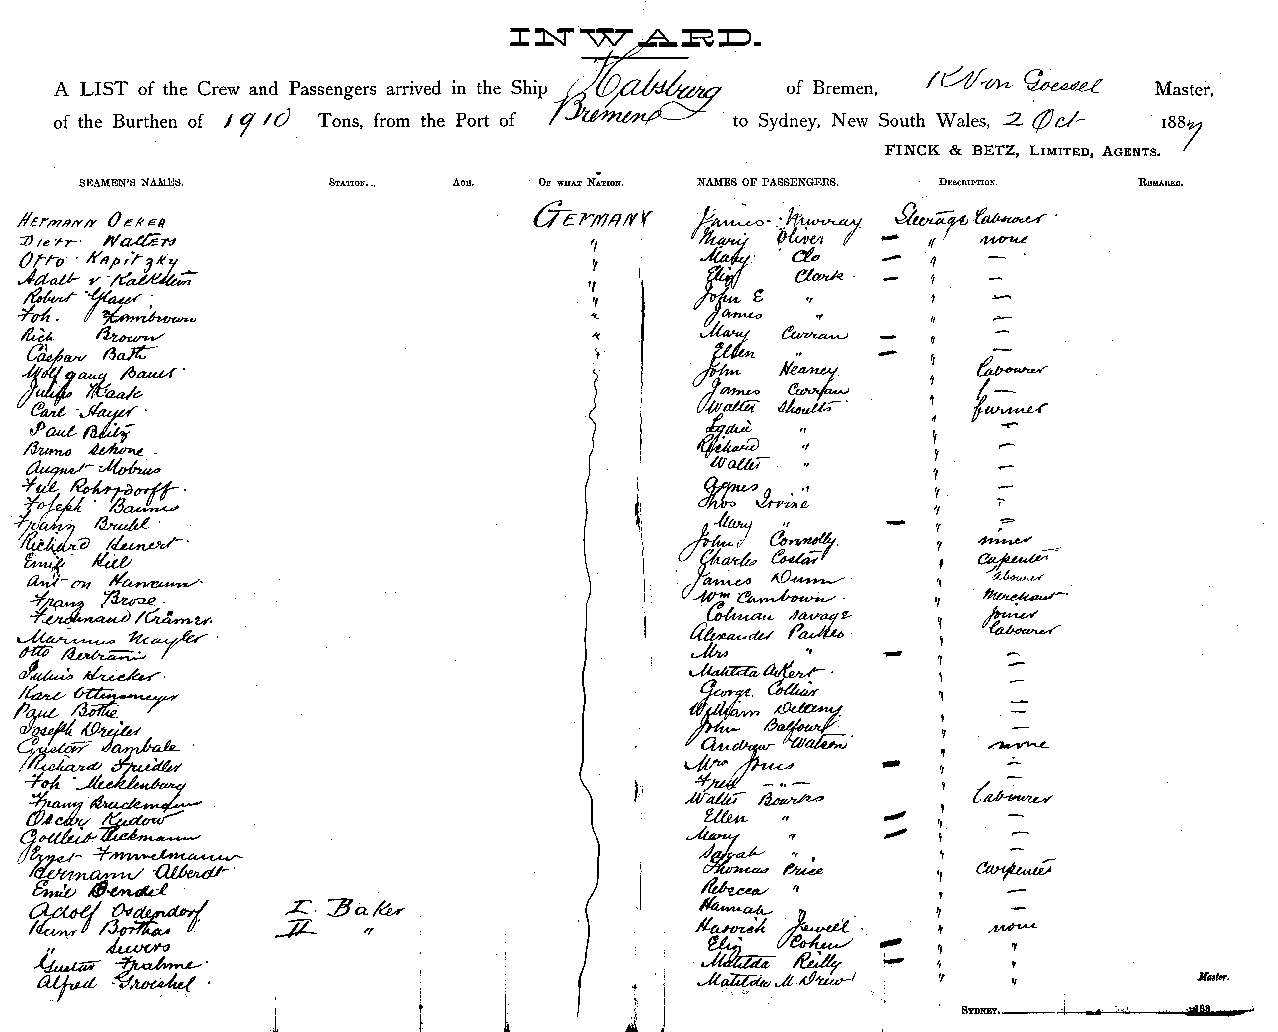 INWARD.
A LIST of the Crew and Passengers arrived in the Ship Habsburg of Bremen, K Von Goessel Master,
of the Burthen of 1910 Tons, from the Port of Bremen to Sydney, New South Wales, 2 Oct 1887
FINCK & BETZ, LIMITED, AGENTS.
SEAMEN'S NAMES. STATION. AGE. OF WHAT NATION. NAMES OF PASSENGERS. DESCRIPTION. REMARKS.
HERMANN GERMANY James Murray Steerage Labourer
Dietr Walters " Mary Oliver — " none
Otto Kapitzky " Mary Clo — " —
Adalb v Kalkstein " Eliz Clark — " —
Robert Glaser " John E " " —
Joh. " James " " —
Rich Brown " Mary Curran — " —
Caspar Bath " Ellen " — " —
Wolfgang Bauer John Heaney " labourer
Julius Haak James Curran " —
Carl Hayer Walter Shoults " farmer
Paul Beitz Lydia " " —
Bruno Schone Richard " " —
August Mobius Walter " " —
Jul Rohrsdorff Agnes " " —
Joseph Baums Thos Irvine " "
Franz Bruhl Mary " — " —
Richard Heinert John Connolly " miner
Emil Hill Charles Costar " Carpenter
Anton Hamann James Dunn " labourer
Franz Brose Wm Cambown " Merchant
Ferdinand Krämer Colman Savage " Joiner
Marinus Mayler Alexander Parkes " labourer
Otto Bertram Mrs " — " —
Julius Kricker Matilda Ackert " —
Karl Ottensmeyer George Collier " —
Paul Bothe William Dellamy " —
Joseph Dreiler John Balfour " —
Gustav Sambale Andrew Watson " none
Richard Friedler Mrs Jones — " —
Joh Mecklenburg Fred —"— " —
Franz Bruckmann Walter Bourke " Labourer
Oscar Kudow Ellen " — " —
Gottleib Dickmann Mary " — " —
Ernst Immelmann Sarah " " —
Hermann Alberdt Thomas Price " Carpenter
Emil Bendel Rebecca " " —
Adolf Osdendorf I. Baker Hannah " " —
Hans Borthas II " Jewell " none
" Sievers Eliz Cohen — " "
Gustav Frahme Matilda Reilly — " "
Alfred Groschel Matilda M Drew " "
Master.
SYDNEY, 188